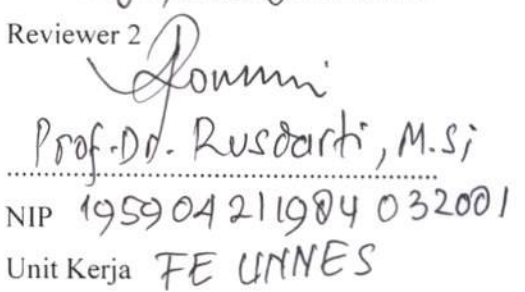 Reviewer 2
Prof. Dr. Rusdarti, M.Si
NIP 195904211984032001
Unit Kerja FE UNNES